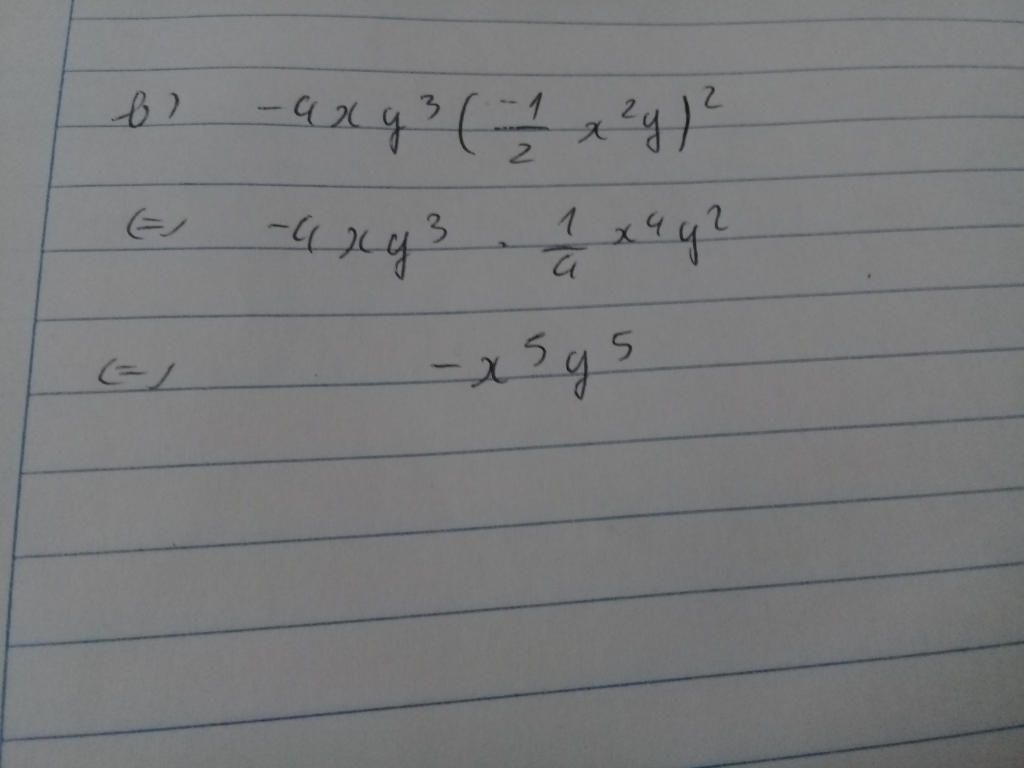 b) -4xy³(-1/2 x²y)²
<=> -4xy³ . 1/4 x⁴y²
<=> -x⁵y⁵